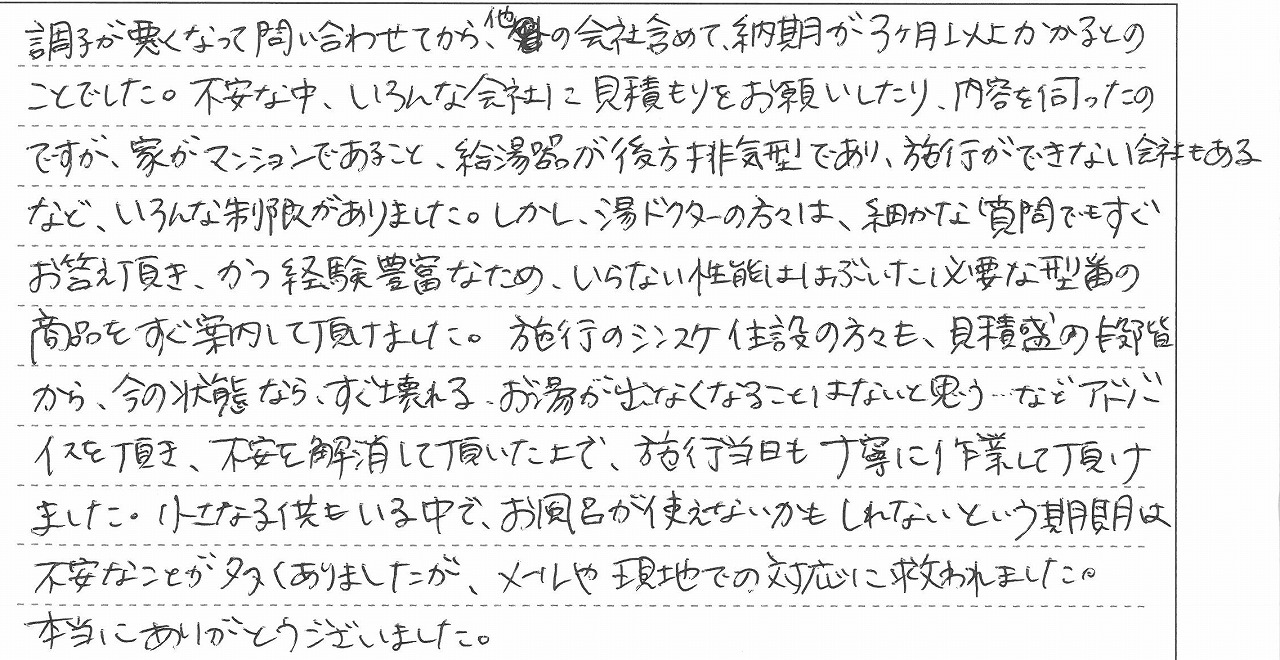 調子が悪くなって問い合わせてから、他の会社含めて、納期が3ヶ月以上かかるとの
ことでした。不安な中、いろんな会社に見積もりをお願いしたり、内容を伺ったの
ですが、家がマンションであること、給湯器が後方排気型であり、施行ができない会社もある
など、いろんな制限がありました。しかし、湯ドクターの方々は、細かな質問でもすぐ
お答え頂き、かつ経験豊富なため、いらない性能ははぶいた必要な型番の
商品をすぐ案内して頂けました。施行のシンスケ住設の方々も、見積盛の段階
から、今の状態なら、すぐ壊れる、お湯が出なくなることはないと思う…などアドバ
イスを頂き、不安を解消して頂いた上で、施行当日も丁寧に作業して頂け
ました。小さな子供もいる中で、お風呂が使えないかもしれないという期間は
不安なことが多くありましたが、メールや現地での対応に救われました。
本当にありがとうございました。